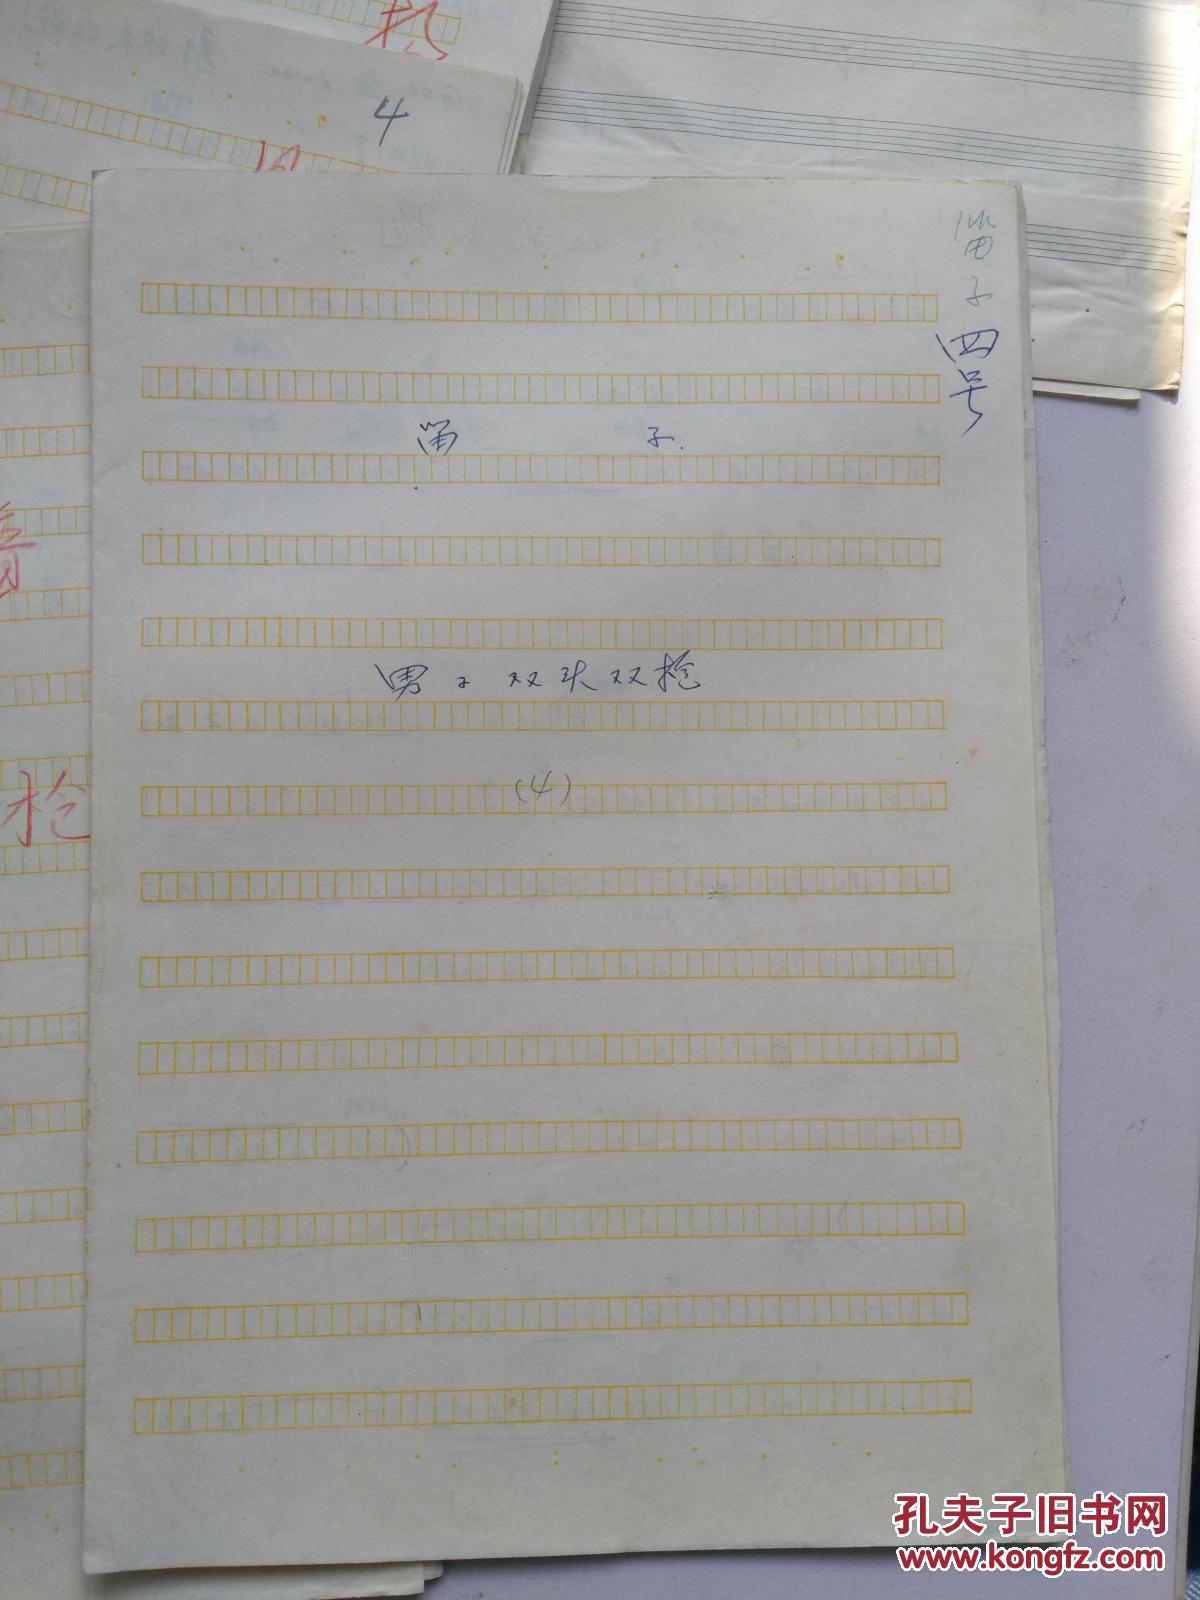 4
笛子
四号
笛 子.
男子双头双枪
(4)
音
枪
孔夫子旧书网
www.kongfz.com